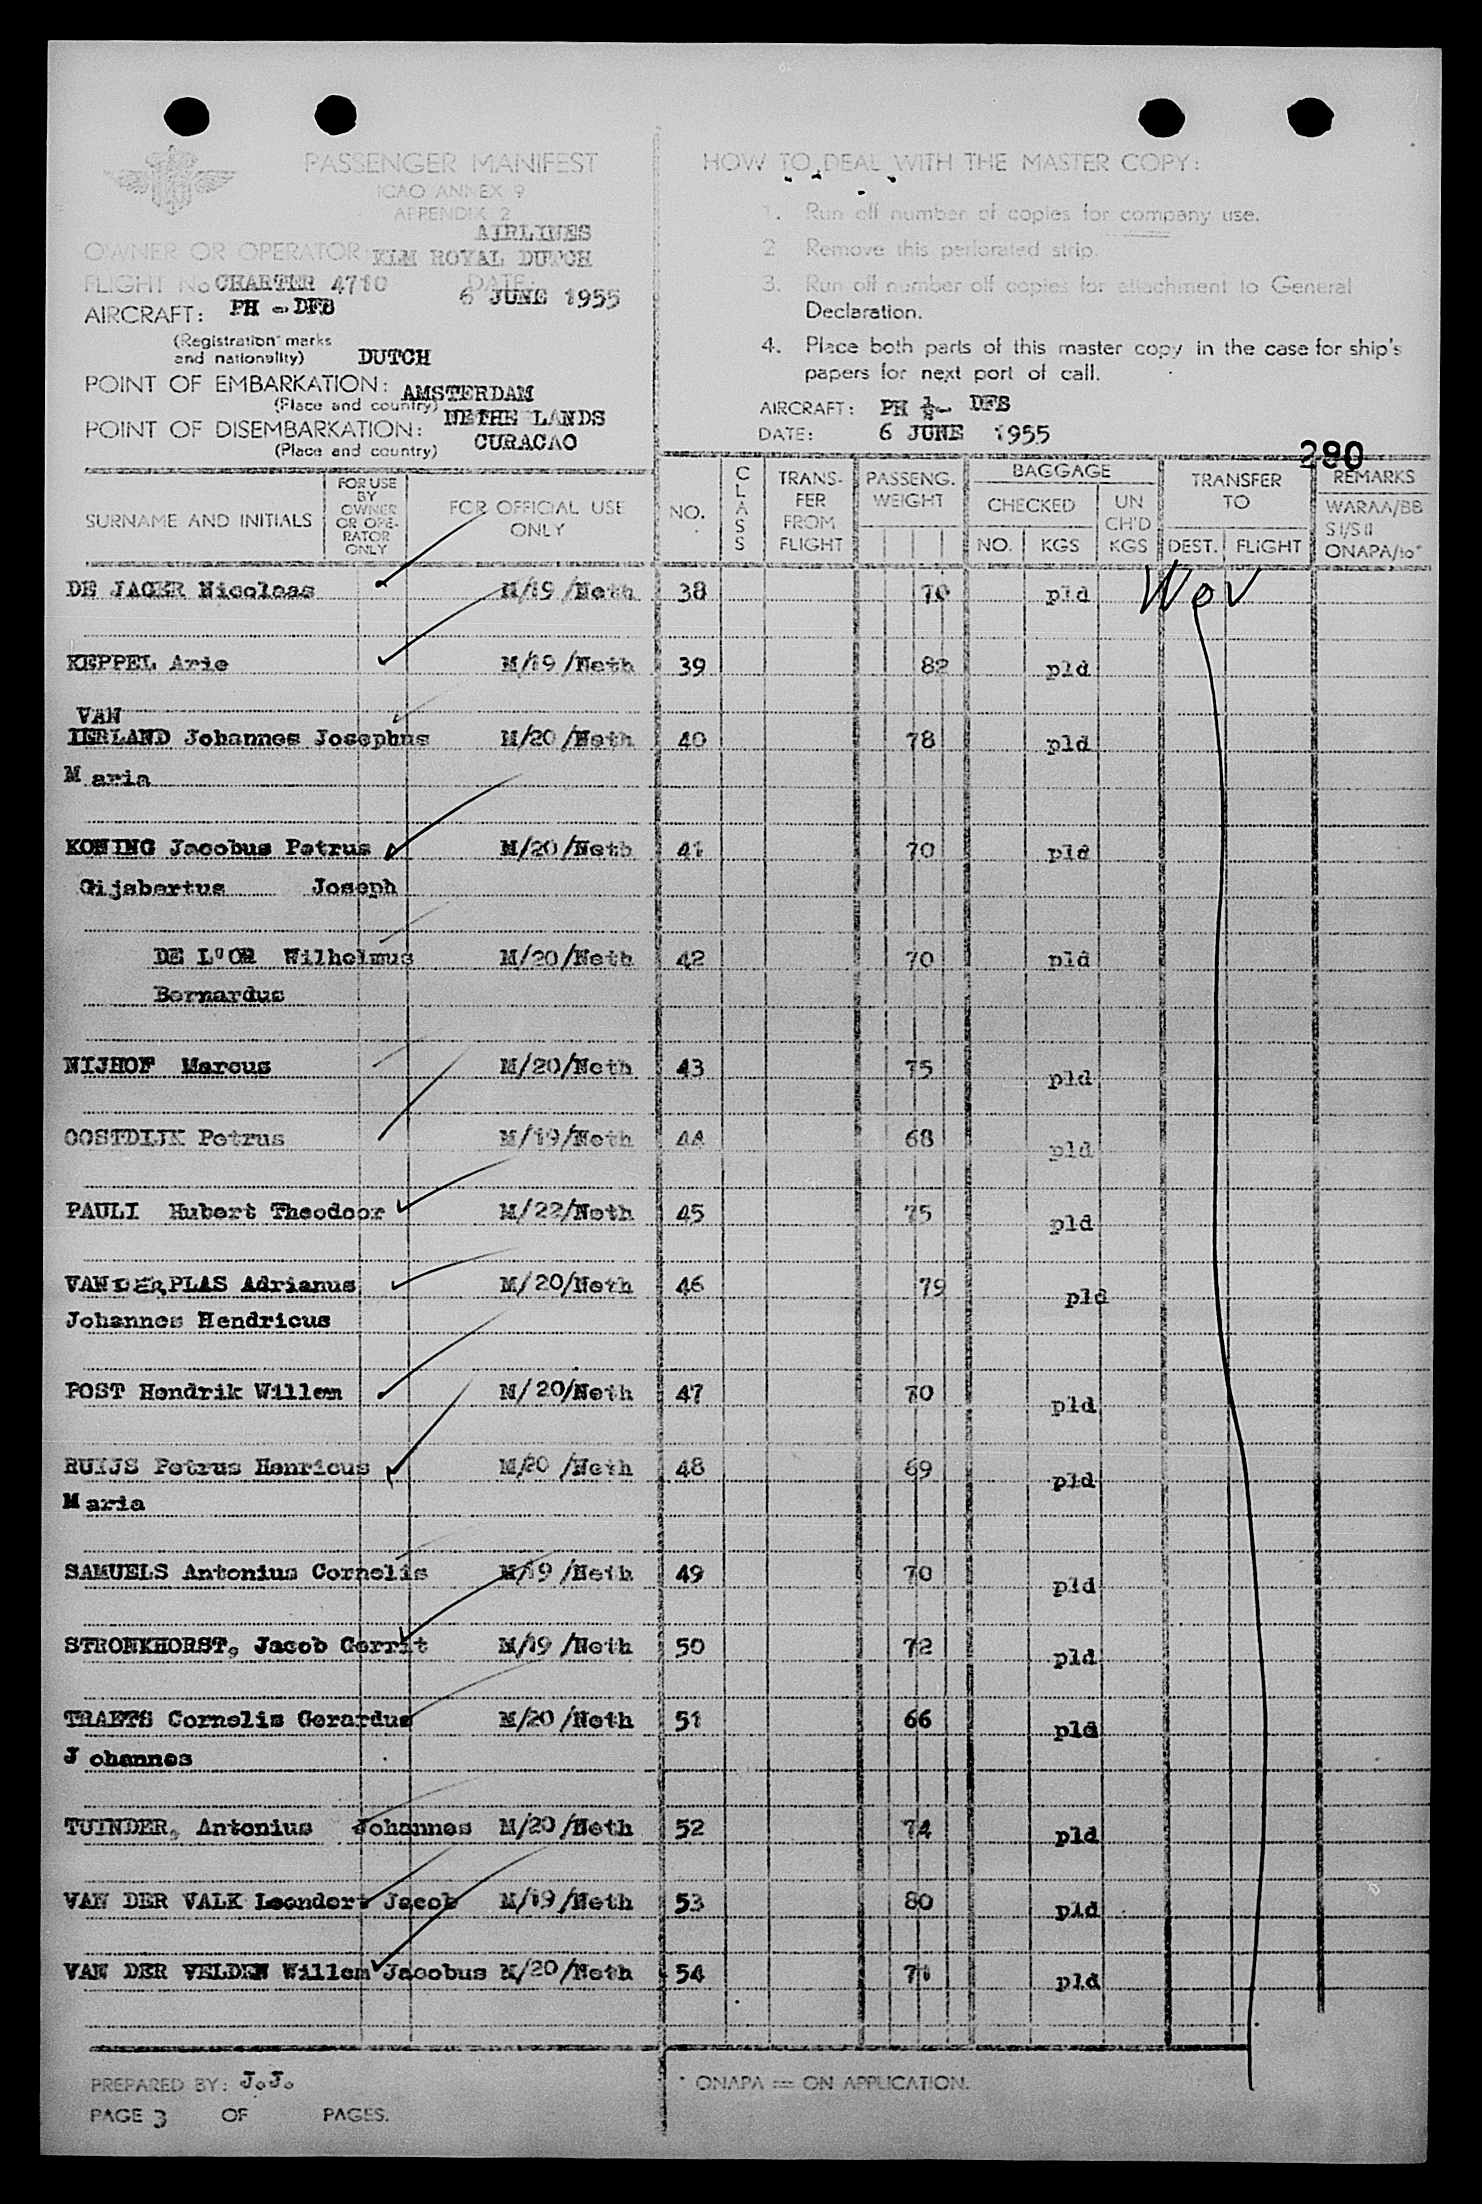 PASSENGER MANIFEST
ICAO ANNEX 9
APPENDIX 2
AIRLINES
OWNER OR OPERATOR: KLM ROYAL DUTCH
FLIGHT No CHARTER 4710 DATE: 6 JUNE 1955
AIRCRAFT: PH - DFB
(Registration marks
and nationality) DUTCH
POINT OF EMBARKATION: AMSTERDAM
(Place and country) NETHE LANDS
POINT OF DISEMBARKATION: CURACAO
(Place and country)
HOW TO DEAL WITH THE MASTER COPY:
1. Run off number of copies for company use.
2 Remove this perforated strip.
3. Run off number off copies for attachment to General
Declaration.
4. Place both parts of this master copy in the case for ship's
papers for next port of call.
AIRCRAFT: PH - DFB
DATE: 6 JUNE 1955
280
SURNAME AND INITIALS
FOR USE
BY
OWNER
OR OPE-
RATOR
ONLY
FOR OFFICIAL USE
ONLY
NO.
CLASS
TRANS-
FER
FROM
FLIGHT
PASSENG.
WEIGHT
BAGGAGE
CHECKED
NO. KGS
UN
CH'D
KGS
TRANSFER
TO
DEST. FLIGHT
REMARKS
WARAA/BB
SI/SII
ONAPA/to*
DE JAGER Nicolaas M/19 /Neth 38 70 pld WoV
KEPPEL Arie M/19 /Neth 39 82 pld
VAN
IERLAND Johannes Josephus M/20 /Neth 40 78 pld
M aria
KONING Jacobus Petrus M/20/Neth 41 70 pld
Gijsbertus Joseph
DE L'OR Wilhelmus M/20/Neth 42 70 pld
Bernardus
NIJHOF Marcus M/20/Neth 43 75 pld
OOSTDIJK Petrus M/19/Neth 44 68 pld
PAULI Hubert Theodoor M/22/Neth 45 75 pld
VAN DER PLAS Adrianus M/20/Neth 46 79 pld
Johannes Hendricus
POST Hendrik Willem M/20/Neth 47 70 pld
RUIJS Petrus Henricus M/20 /Neth 48 69 pld
M aria
SAMUELS Antonius Cornelis M/19 /Neth 49 70 pld
STRONKHORST, Jacob Gerrit M/19 /Neth 50 72 pld
TRAETS Cornelis Gerardus M/20 /Neth 51 66 pld
J ohannes
TUINDER, Antonius Johannes M/20 /Neth 52 74 pld
VAN DER VALK Leendert Jacob M/19 /Neth 53 80 pld
VAN DER VELDEN Willem Jacobus M/20/Neth 54 71 pld
PREPARED BY: J.J.
PAGE 3 OF PAGES.
* ONAPA = ON APPLICATION.